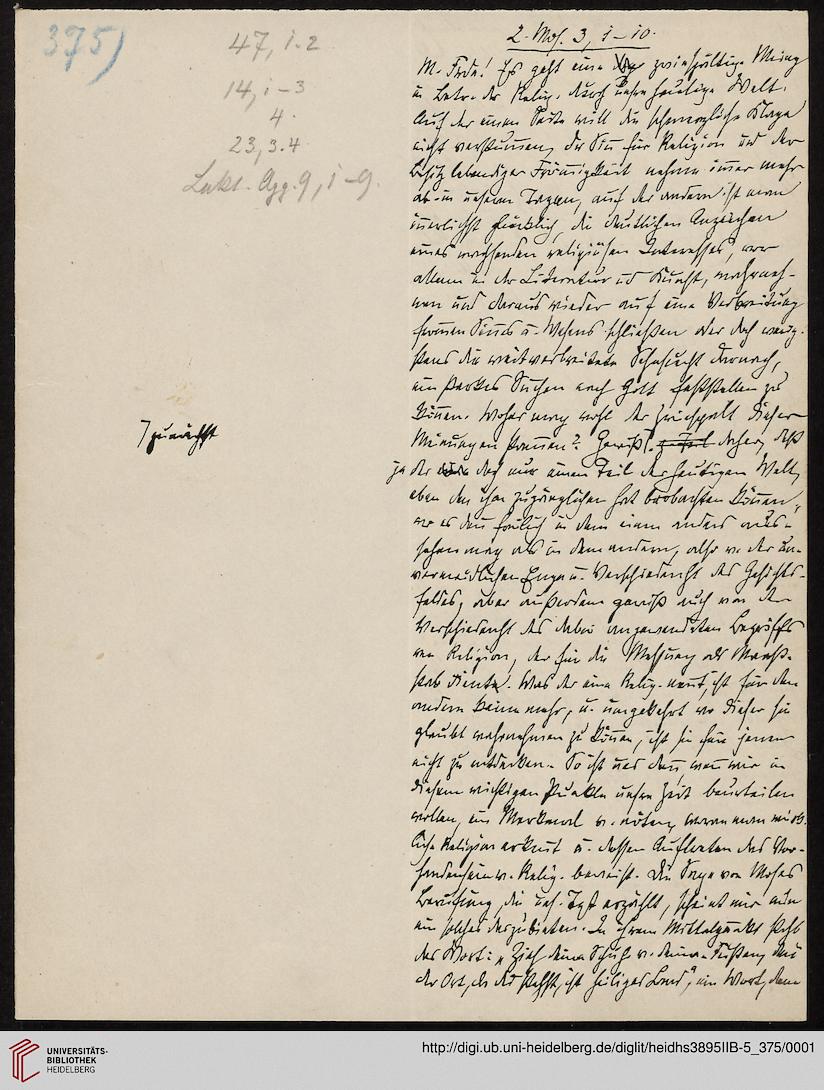 375)
47, 1-2
14, 1-3
4.
23, 3.4
Lekt. Agg. 9, 1-9.
2. Mos. 3, 1-10.
M. Frde! Es geht eine zwiespältige Meing
in Betr. der Relig. durch unsre heutige Welt.
Auf der einen Seite will die schmerzliche Klage
nicht verstummen, der Sinn für Religion und der
Besitz lebendiger Frömmigkeit nehme immer mehr
ab in unseren Tagen, auf der andern ist man
glücklich, die deutlichen Anzeichen
eines wachsenden religiösen Interesses, vor
allem in der Literatur und Kunst, wahrneh-
men und daraus wieder auf eine Verbreitung
frommen Sinnes u. Wesens schließen oder doch wenig-
stens die weitverbreitete Sehnsucht darnach,
ein starkes Suchen nach Gott feststellen zu
können. Woher mag wohl der Zwiespalt dieser
Meinungen stammen? Gewiß z. Teil daher, daß
┐zunächst
ja der doch nur einen Teil der heutigen Welt,
eben den ihm zugänglichen hat beobachten können,
wo es denn freilich in dem einen anders aus-
sehen mag als in dem andern, also v. der un-
vermeidlichen Enge u. Verschiedenht des Gesichts-
feldes, aber außerdem gewiß auch von der
Verschiedenht des dabei angewendeten Begriffs
von Religion, der für die Messung als Maaß-
stab diente. Was der eine Relig. nennt, ist für den
andern keine mehr, u. umgekehrt wo dieser sie
glaubt wahrnehmen zu können, ist sie für jenen
nicht zu entdecken. So ist uns denn, wenn wir in
diesem wichtigen Punkte unsre Zeit beurteilen
wollen, ein Merkmal v. nöten, woran man wirk-
liche Religion erkennt u. dessen Auftreten das Vor-
handensein v. Relig. beweist. Die Sage von Moses
Berufung, die uns. Text erzählt, scheint mir nun
ein solches darzubieten. In ihrem Mittelpunkt steht
das Wort: „Zieh deine Schuh v. deinen Füßen, denn
der Ort, da du stehst, ist heiliges Land", ein Wort, dem
UNIVERSITÄTS-
BIBLIOTHEK
HEIDELBERG
http://digi.ub.uni-heidelberg.de/diglit/heidhs3895IIB-5_375/0001